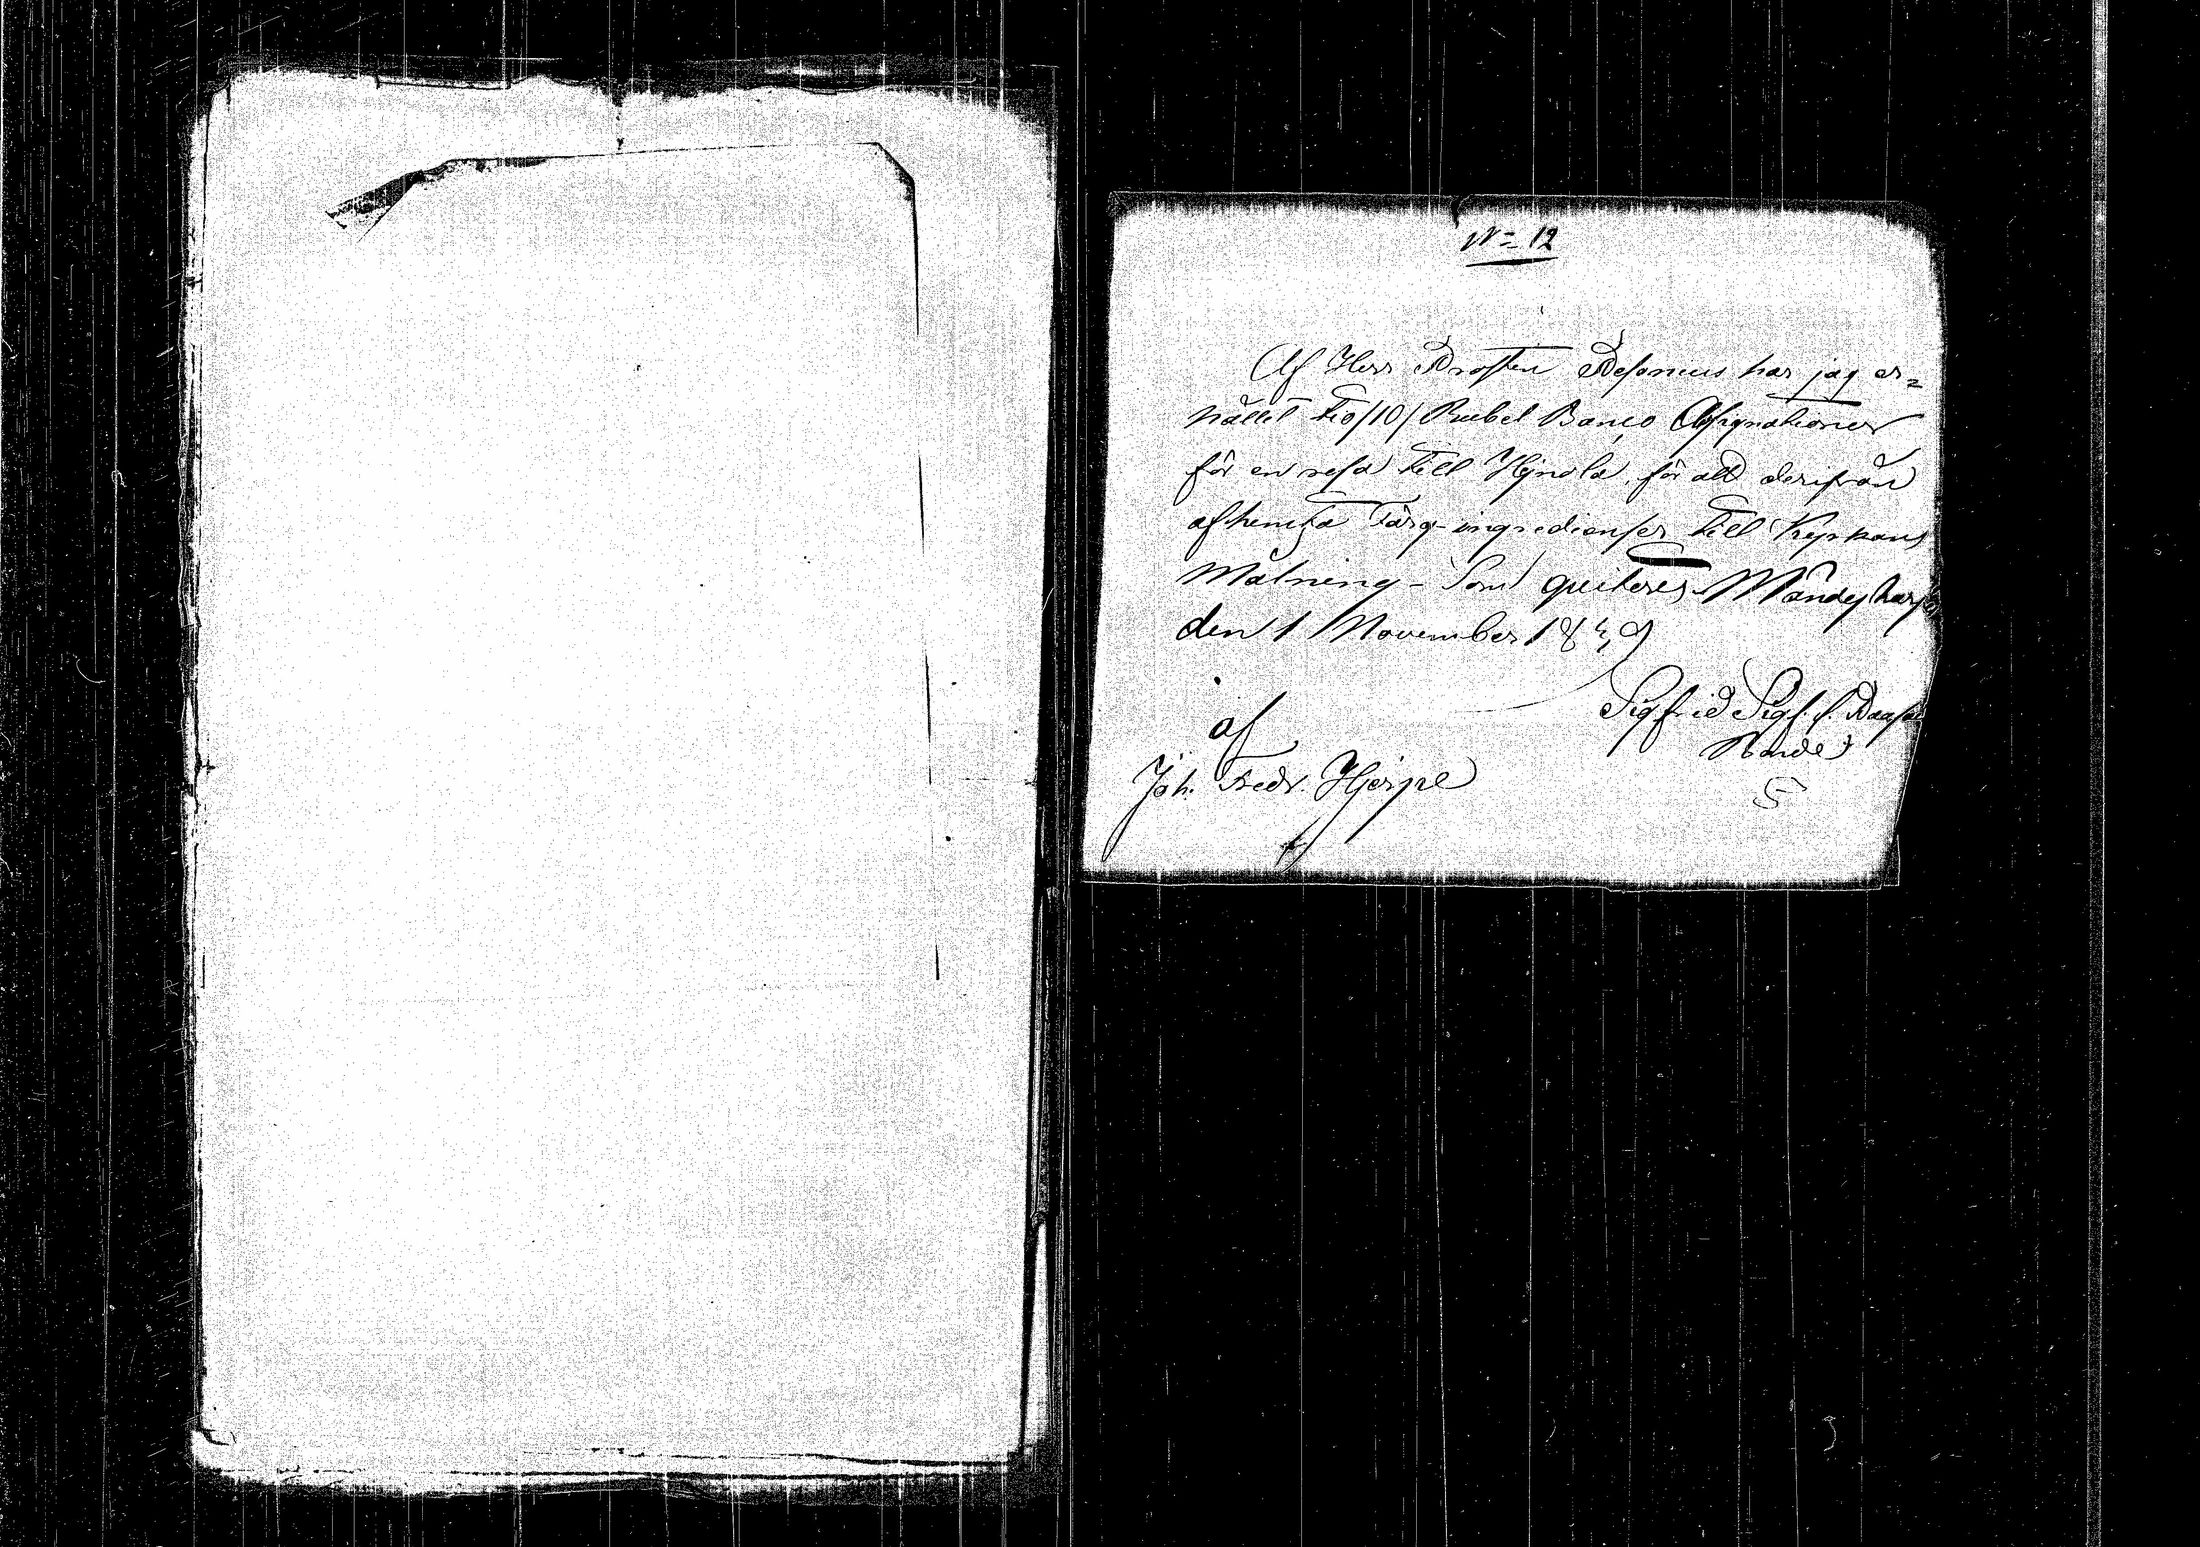 N= 12
Af Herr Prosten Resonius har jag er=
hållit tio /10/ Rubel Banco Assignationer
för en resa till Hejnola, för att derifrån
afhemta Färg-ingredienser till Kyrkans
Målning - Som quiteres. Mändyharju
den 1 November 1849
Sigfrid Sigf. s.
af
Joh. Fredr. Hjerpe